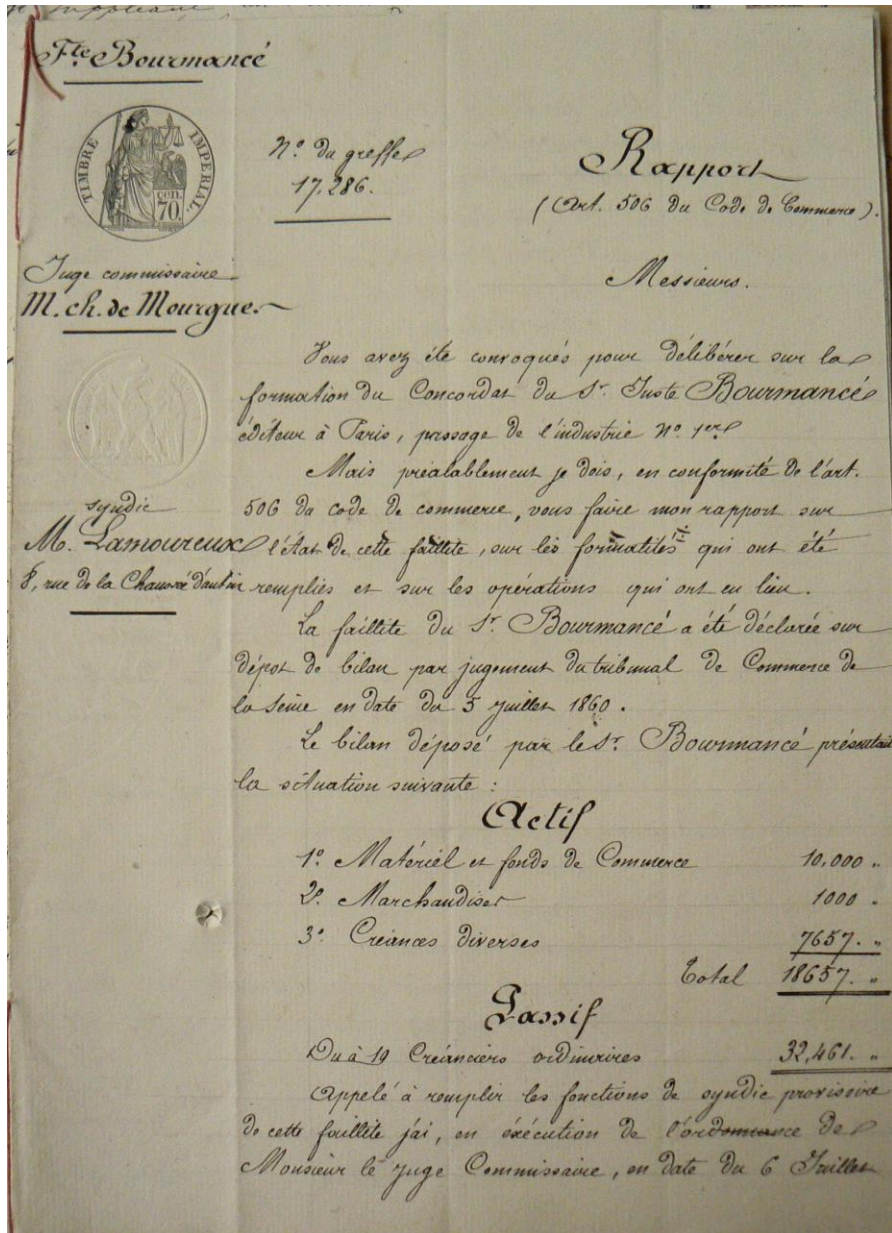 Fte Bourmancé
TIMBRE IMPERIAL
CEN. 70.
No. du greffe
17,286.
Rapport
(Art. 506 du Code de Commerce).
Juge commissaire
M. ch. de Mourgue.
Messieurs.
Vous avez été convoqués pour délibérer sur la
formation du Concordat du Sr. Juste Bourmancé
éditeur à Paris, passage de l'industrie No. 1er
Mais préalablement je dois, en conformité de l'art.
506 du code de commerce, vous faire mon rapport sur
syndic
M. Lamoureux
8, rue de la Chaussée d'antin
l'état de cette faillite, sur les formalités qui ont été
remplies et sur les opérations qui ont eu lieu.
La faillite du Sr. Bourmancé a été déclarée sur
dépot de bilan par jugement du tribunal de Commerce de
la Seine en date du 5 juillet 1860.
Le bilan déposé par le Sr. Bourmancé présentait
la situation suivante :
Actif
1o. Matériel et fonds de Commerce 10,000 "
2o. Marchandises 1000 "
3o. Créances diverses 7657. "
Total 18657. "
Passif
Du à 19 Créanciers ordinaires 32,461. "
Appelé à remplir les fonctions de syndic provisoire
de cette faillite j'ai, en éxécution de l'ordonnance de
Monsieur le juge Commissaire, en date du 6 Juillet